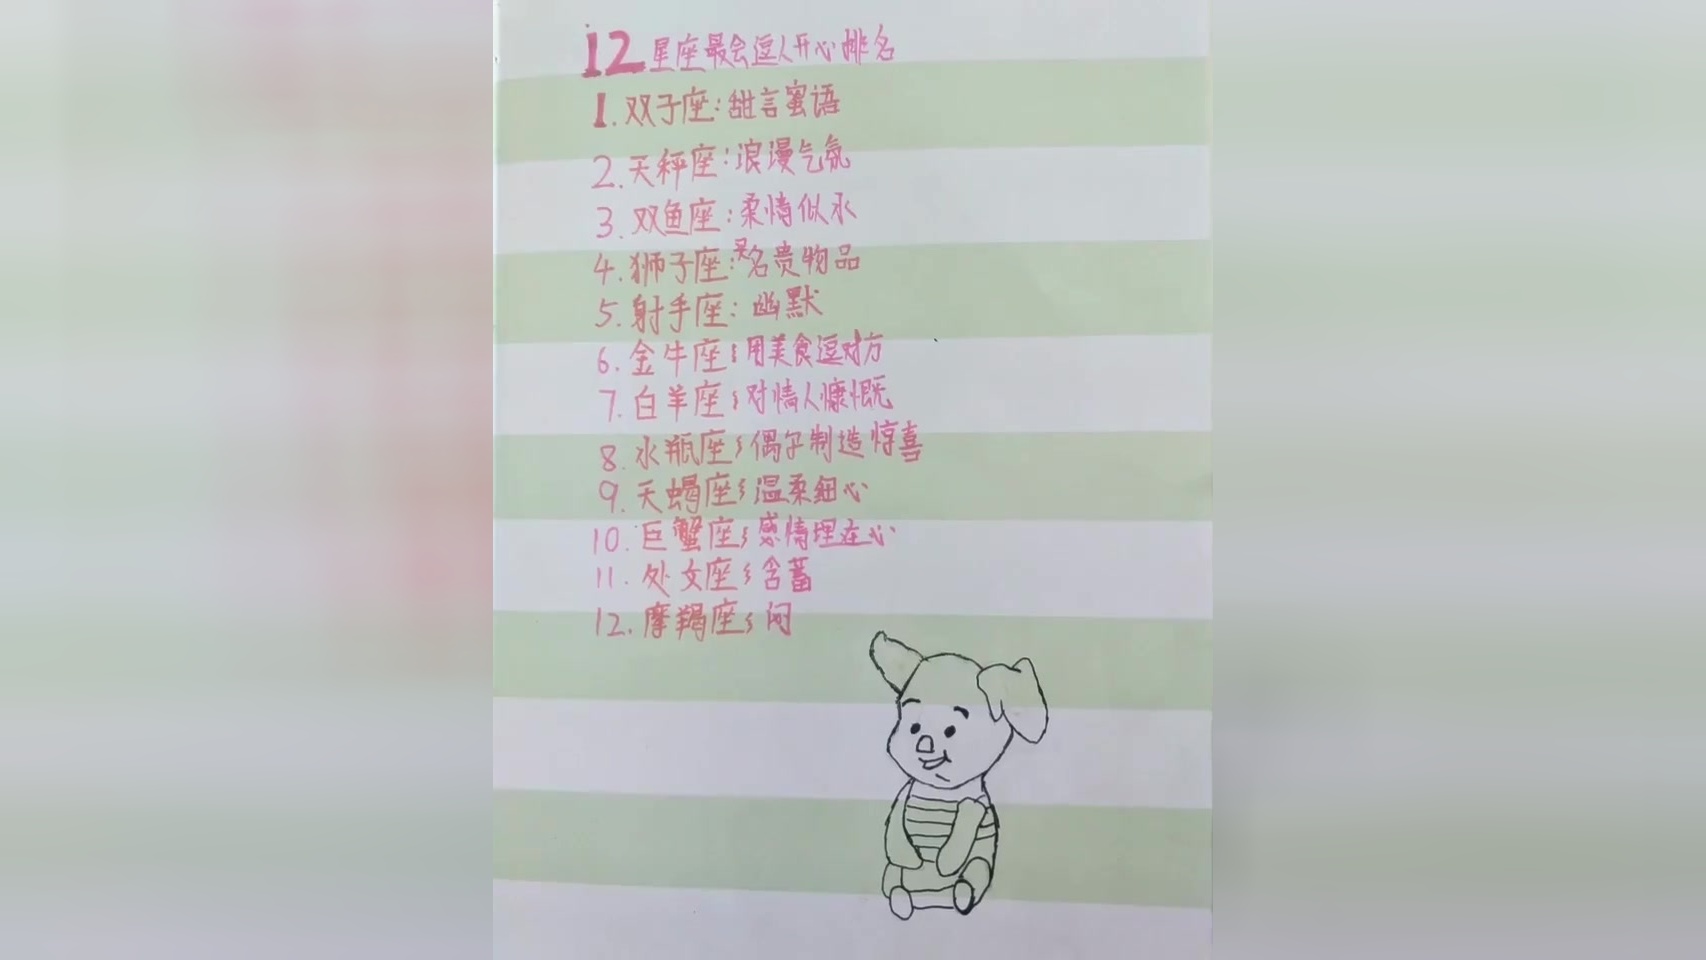 12星座最会逗人开心排名
1.双子座:甜言蜜语
2.天秤座:浪漫气氛
3.双鱼座:柔情似水
4.狮子座:名贵物品
5.射手座:幽默
6.金牛座:用美食逗对方
7.白羊座:对情人慷慨
8.水瓶座:偶尔制造惊喜
9.天蝎座:温柔细心
10.巨蟹座:感情埋在心
11.处女座:含蓄
12.摩羯座:闷